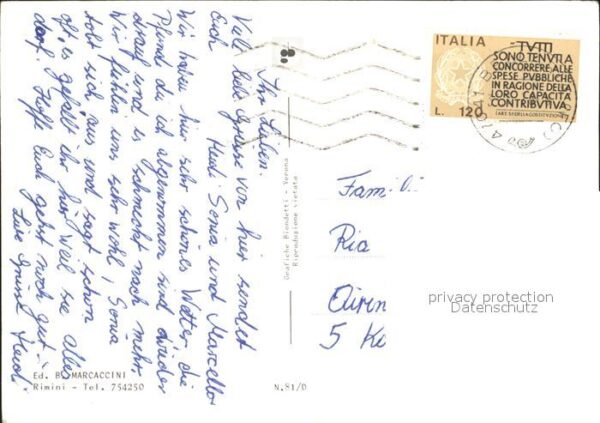 Ihr Lieben.
Viele liebe Grüsse von hier sendet
Euch Heidi. Sonia und Marcello
Wir haben hier sehr schönes Wetter, die
Pfund die ich abgenommen sind wieder
drauf und es schmeckt nach mehr.
Wir fühlen uns sehr wohl, Sonia
tobt sich aus und sagt schon
oft, es gefällt ihr hier weil sie alles
darf. Hoffe Euch gehts noch gut.
Liebe Grüsse Heidi
Ed. B. MARCACCINI
Rimini - Tel. 754250
N.81/D
Grafiche Biondetti - Verona
Riproduzione vietata
ITALIA
TUTTI
SONO TENUTI A
CONCORRERE ALLE
SPESE PUBBLICHE
IN RAGIONE DELLA
LORO CAPACITÀ
CONTRIBUTIVA
L. 120
Fam
Ria
5 Kö
privacy protection
Datenschutz